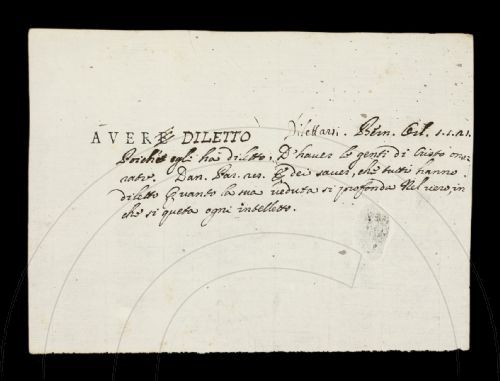 AVERE DILETTO Dilettarsi. Bern. Orl. 1.1.21.
Poichè egli ha diletto, D'haver le genti di Cristo ono-
rate. Dan. Par. 28. E dei saver, che tutti hanno
diletto Quanto la sua veduta si profonda Nel vero, in
che si queta ogni intelletto.